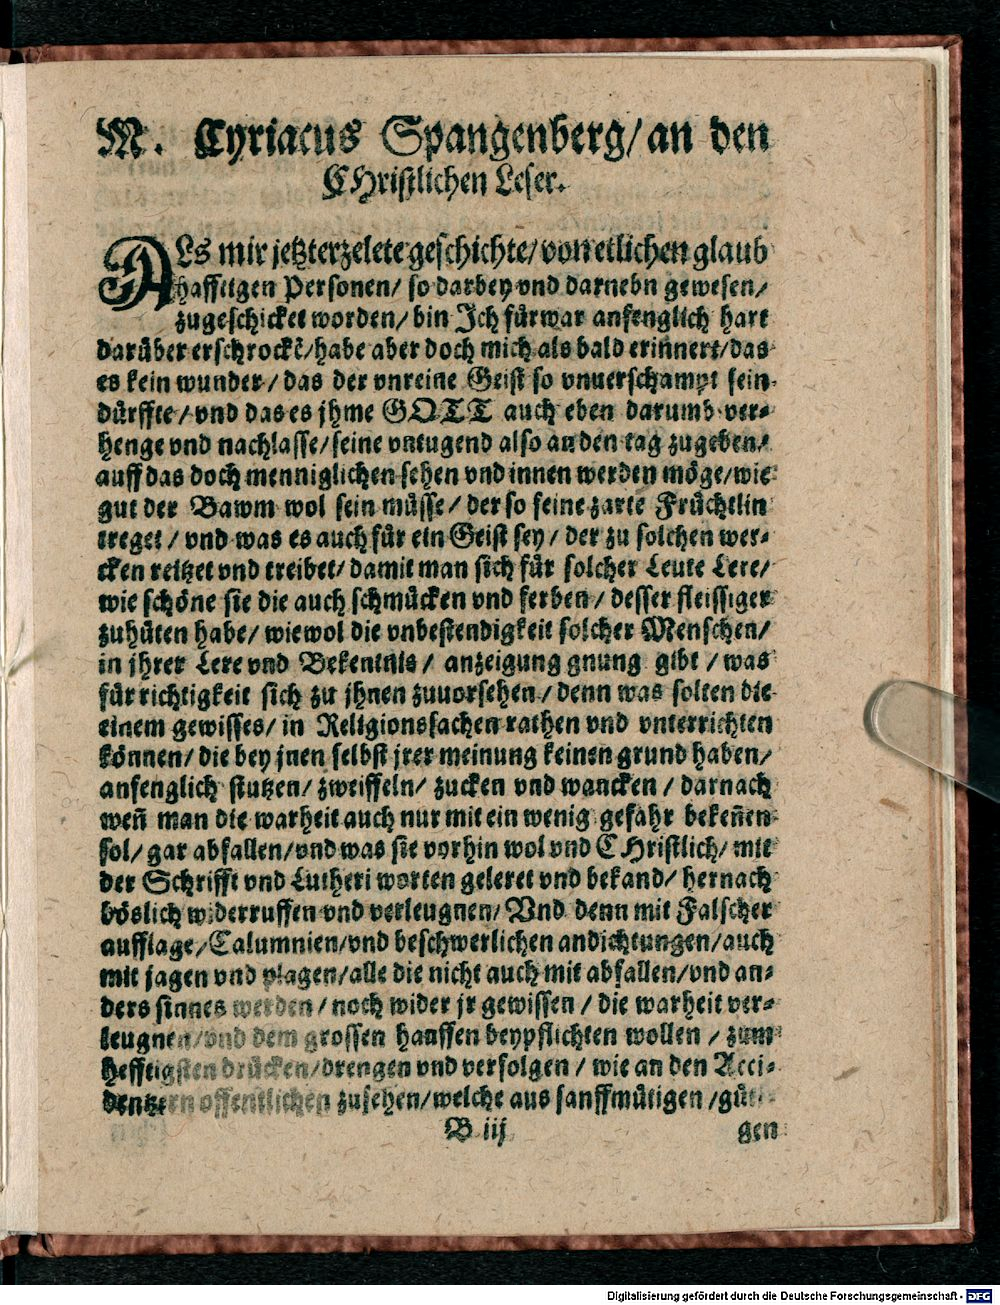 M. Cyriacus Spangenberg/ an den
CHristlichen Leser.
ALs mir jetzterzelete geschichte/ von etlichen glaub
hafftigen Personen/ so darbey vnd darnebn gewesen/
zugeschicket worden/ bin Ich fürwar anfenglich hart
darüber erschrockē/ habe aber doch mich als bald erinnert/ das
es kein wunder/ das der vnreine Geist so vnuerschampt sein
dürffte/ vnd das es jhme GOTT auch eben darumb ver⸗
henge vnd nachlasse/ seine vntugend also an den tag zugeben/
auff das doch menniglichen sehen vnd innen werden möge/ wie
gut der Bawm wol sein müsse/ der so feine zarte Früchtlin
treget/ vnd was es auch für ein Geist sey/ der zu solchen wer⸗
cken reitzet vnd treibet/ damit man sich für solcher Leute Lere/
wie schöne sie die auch schmücken vnd ferben/ desser fleissiger
zuhüten habe/ wiewol die vnbestendigkeit solcher Menschen/
in jhrer Lere vnd Bekentnis/ anzeigung gnung gibt/ was
für richtigkeit sich zu jhnen zuuorsehen/ denn was solten die
einem gewisses/ in Religionssachen rathen vnd vnterrichten
können/ die bey jnen selbst jrer meinung keinen grund haben/
anfenglich stutzen/ zweiffeln/ zucken vnd wancken/ darnach
weñ man die warheit auch nur mit ein wenig gefahr bekeñen
sol/ gar abfallen/ vnd was sie vorhin wol vnd CHristlich/ mit
der Schrifft vnd Lutheri worten geleret vnd bekand/ hernach
böslich widerruffen vnd verleugnen/ Vnd denn mit Falscher
aufflage/ Calumnien/ vnd beschwerlichen andichtungen/ auch
mit jagen vnd plagen/ alle die nicht auch mit abfallen/ vnd an⸗
ders sinnes werden/ noch wider jr gewissen/ die warheit ver⸗
leugnen/ vnd dem grossen hauffen beypflichten wollen/ zum
hefftigsten drücken/ drengen vnd verfolgen/ wie an den Acci⸗
dentzern offentlichen zusehen/ welche aus sanffmütigen/ güt⸗
B iij
gen
Digitalisierung gefördert durch die Deutsche Forschungsgemeinschaft - DFG